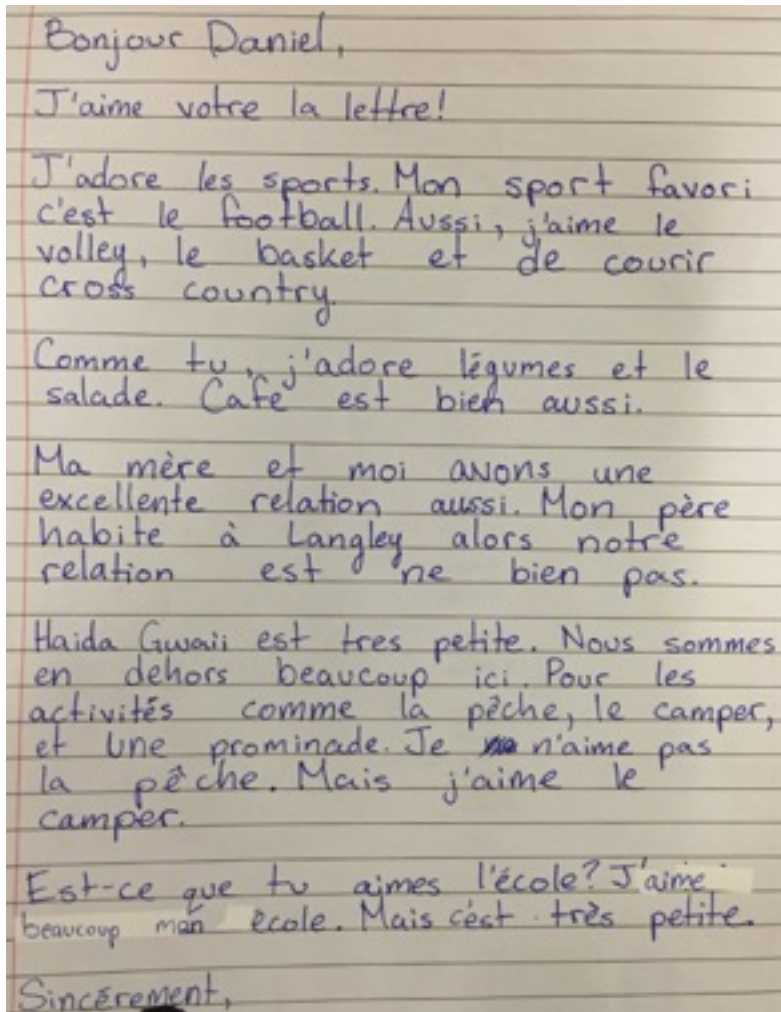 Bonjour Daniel,
J'aime votre la lettre!
J'adore les sports. Mon sport favori
c'est le football. Aussi, j'aime le
volley, le basket et de courir
cross country.
Comme tu, j'adore légumes et le
salade. Café est bien aussi.
Ma mère et moi avons une
excellente relation aussi. Mon père
habite à Langley alors notre
relation est ne bien pas.
Haida Gwaii est tres petite. Nous sommes
en dehors beaucoup ici. Pour les
activités comme la pêche, le camper,
et une prominade. Je n'aime pas
la pêche. Mais j'aime le
camper.
Est-ce que tu aimes l'école? J'aime
beaucoup mon école. Mais c'est très petite.
Sincèrement,